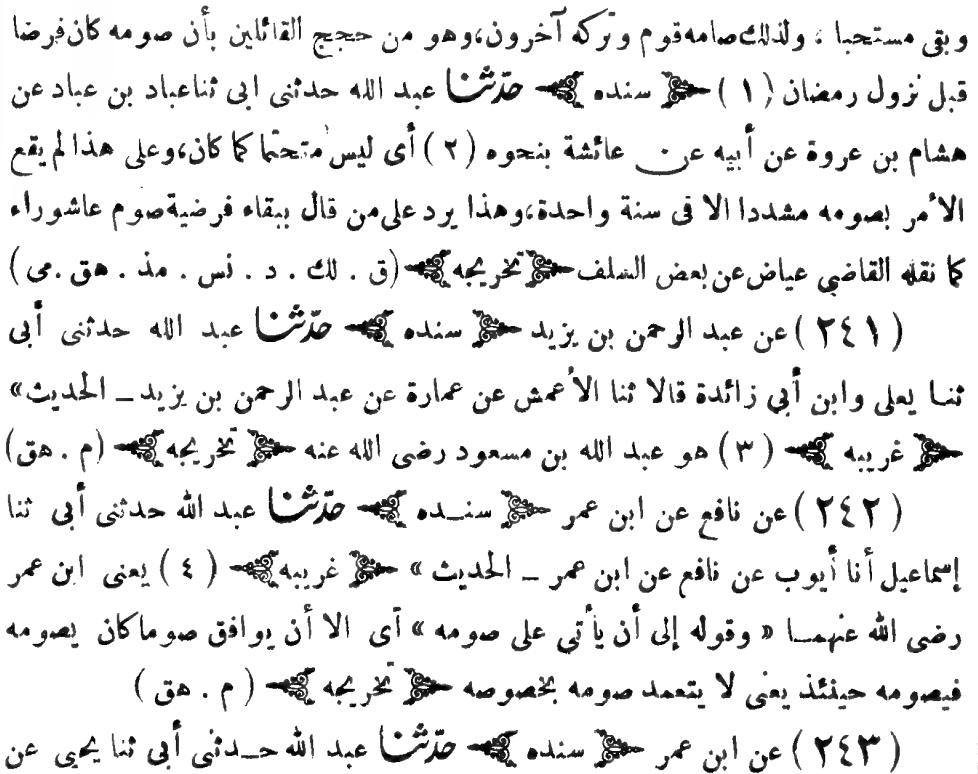 وبقى مستحبا ، ولذلك صامه قوم وتركه آخرون، وهو من حجج القائلين بأن صومه كان فرضا
قبل نزول رمضان (١) سنده حدّثنا عبد الله حدثنى ابى ثنا عباد بن عباد عن
هشام بن عروة عن أبيه عن عائشة بنحوه (٢) أى ليس متحتما كما كان، وعلى هذا لم يقع
الأمر بصومه مشددا الا فى سنة واحدة، وهذا يرد على من قال ببقاء فرضية صوم عاشوراء
كما نقله القاضي عياض عن بعض السلف تخريجه (ق . لك . د . نس . مذ . هق . مى)
(٢٤١) عن عبد الرحمن بن يزيد سنده حدّثنا عبد الله حدثنى أبى
ثنا يعلى وابن أبي زائدة قالا ثنا الأعمش عن عمارة عن عبد الرحمن بن يزيد ــ الحديث»
غريبه (٣) هو عبد الله بن مسعود رضى الله عنه تخريجه (م . هق)
(٢٤٢) عن نافع عن ابن عمر سنــده حدّثنا عبد الله حدثنى أبى ثنا
إسماعيل أنا أيوب عن نافع عن ابن عمر ــ الحديث » غريبه (٤) يعنى ابن عمر
رضى الله عنهمــا « وقوله إلى أن يأتى على صومه » أى الا أن يوافق صوما كان يصومه
فيصومه حينئذ يعنى لا يتعمد صومه بخصوصه تخريجه (م . هق)
(٢٤٣) عن ابن عمر سنده حدّثنا عبد الله حــدثنى أبى ثنا يحيى عن